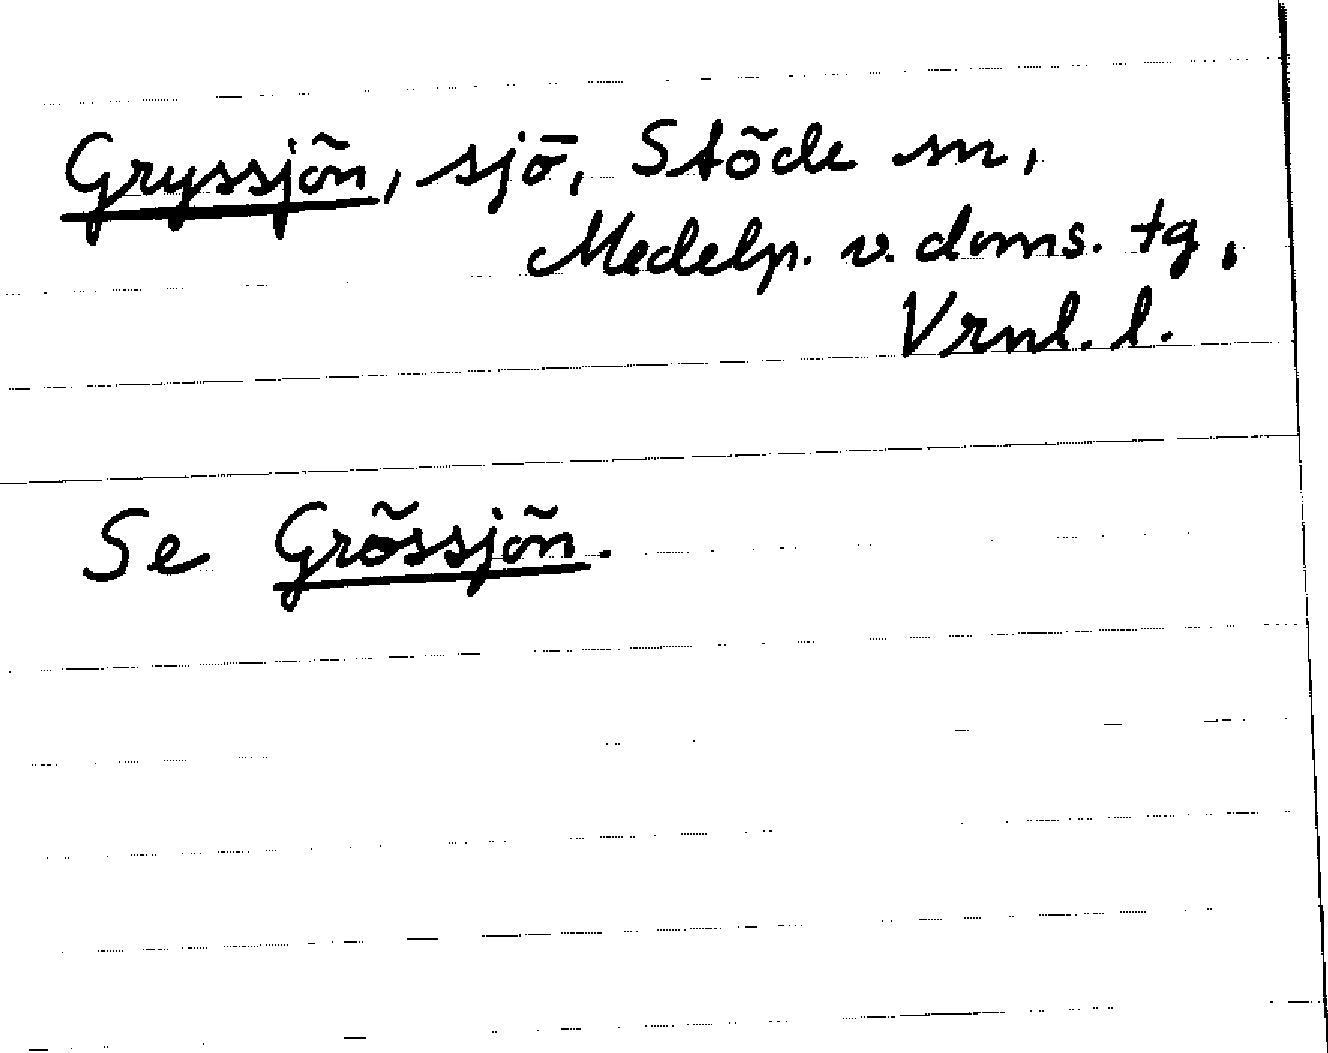 Gryssjön, sjö, Stöde sn,
Medelp. v. doms. tg,
Vrnl. l.
Se Grössjön.